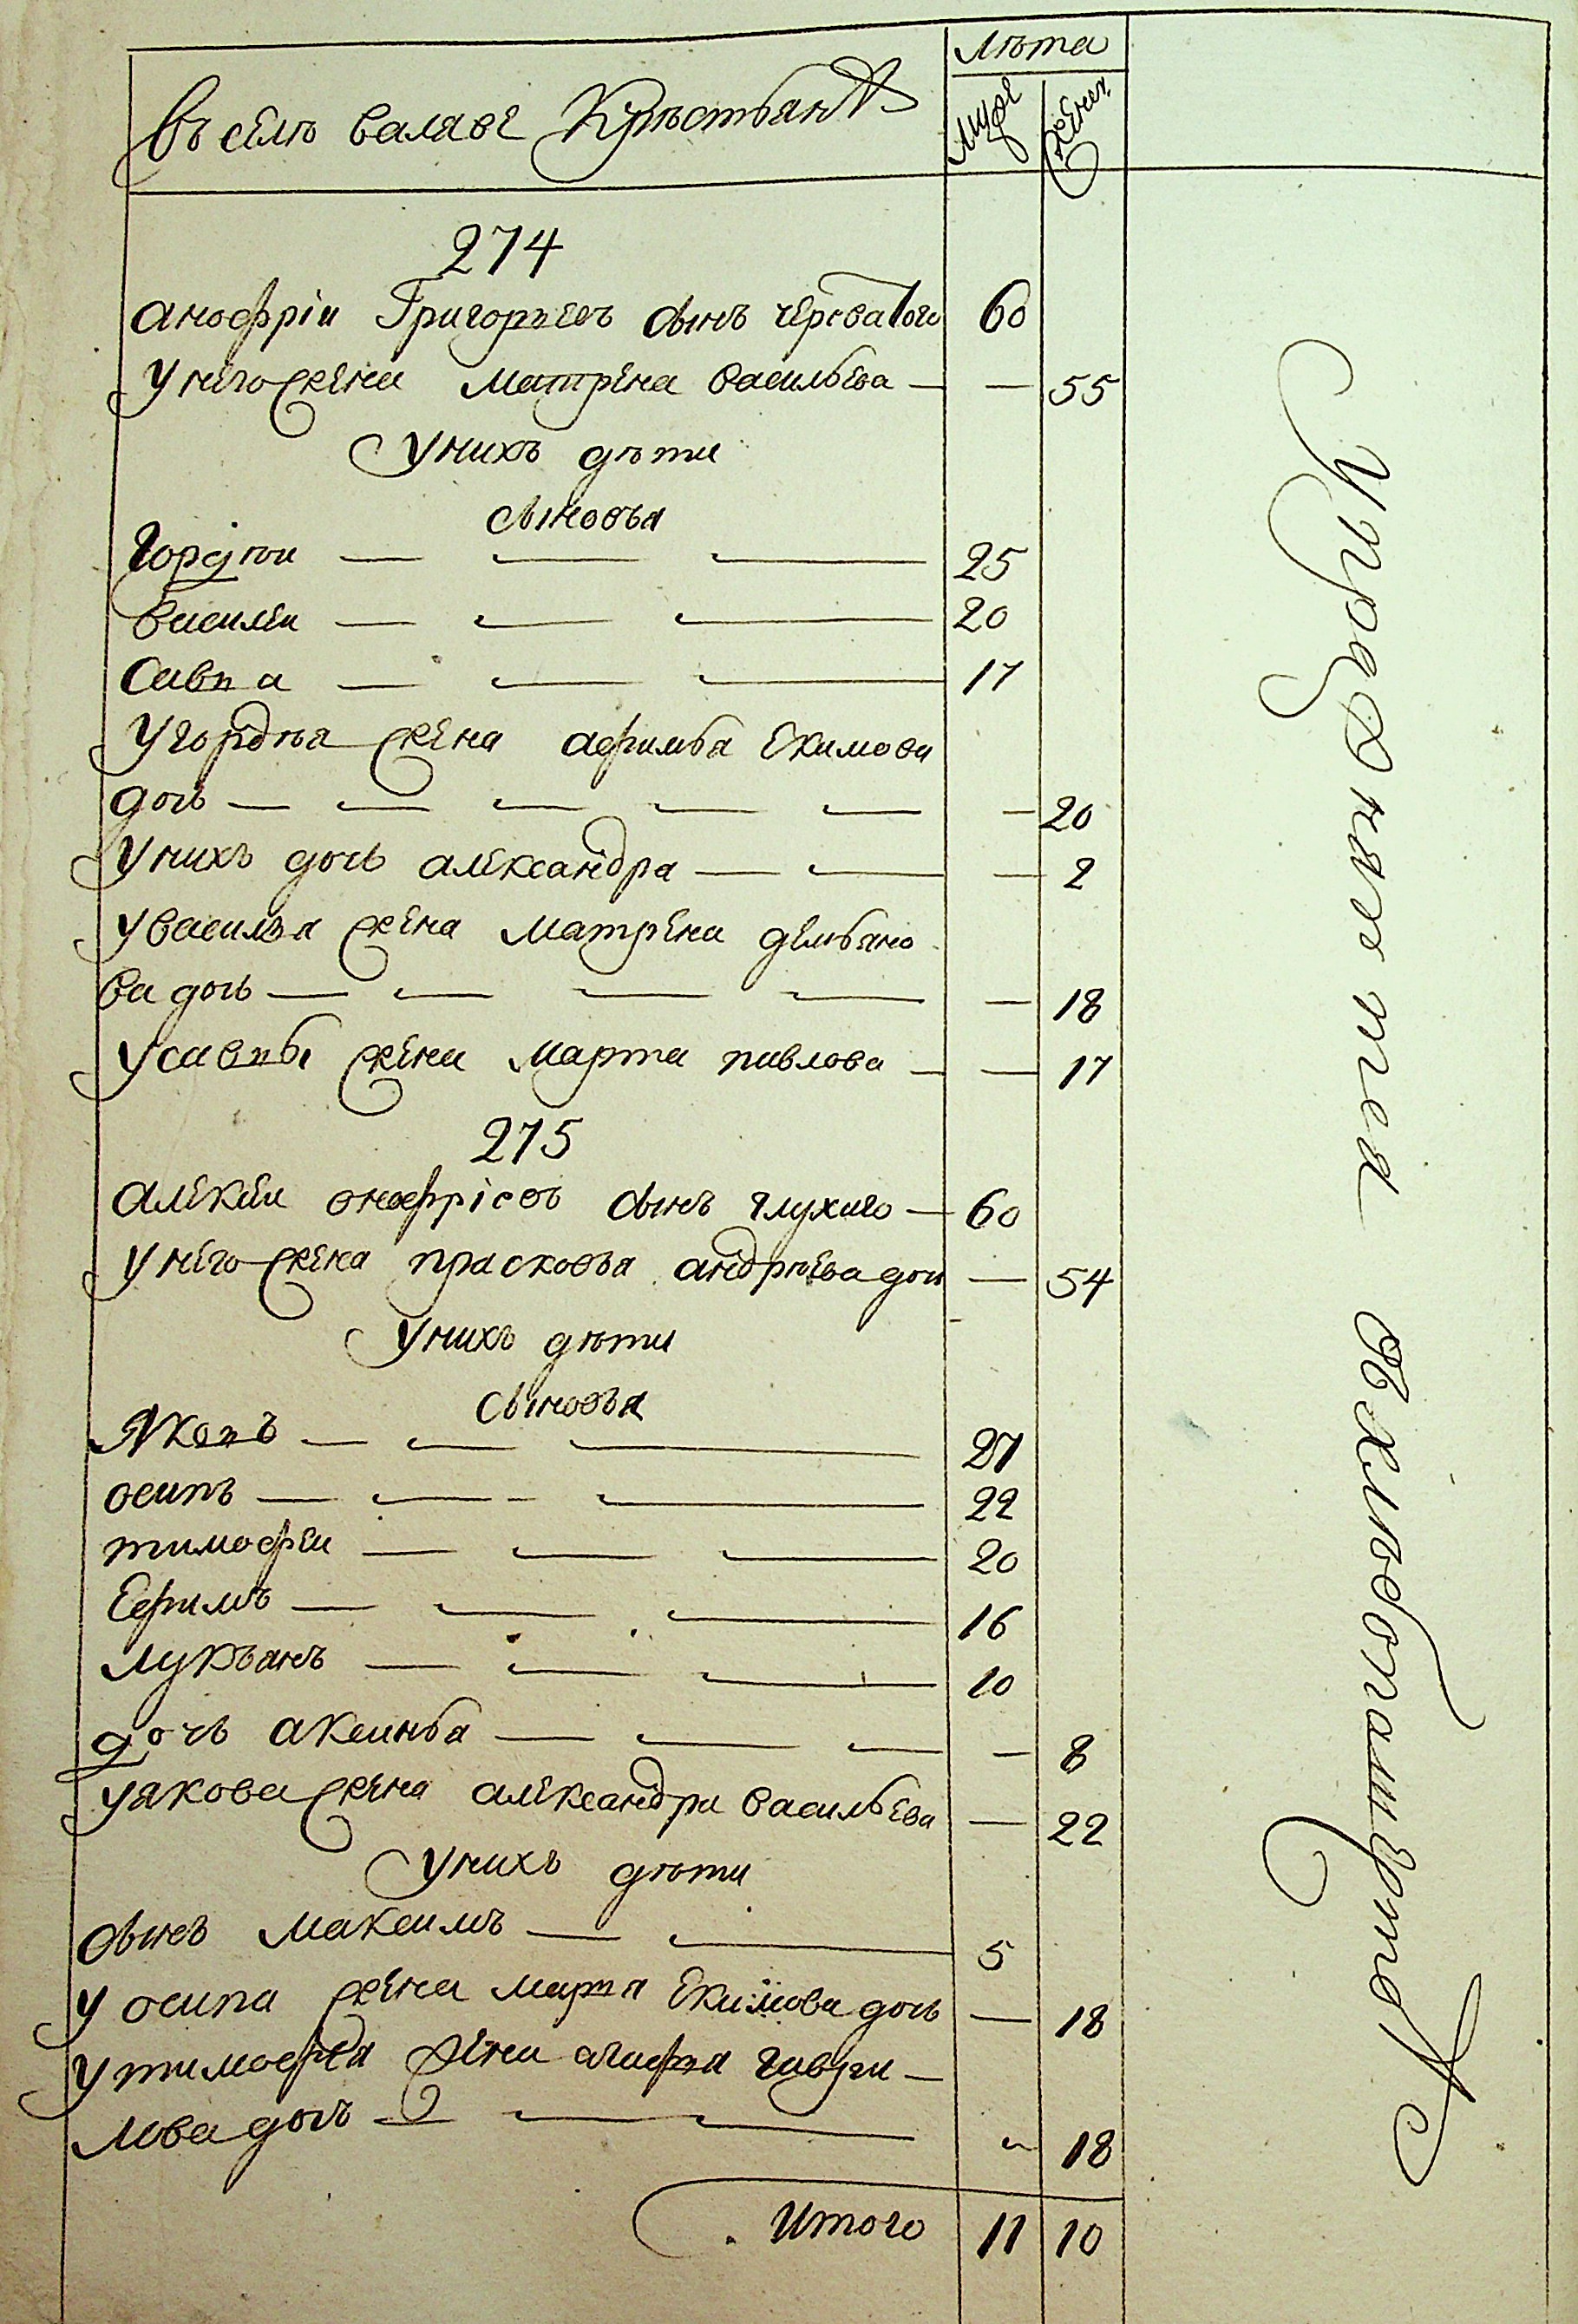 Въ селѣ валявѣ Крѣстьянъ
лѣта
муже
женс
274
анофріи Григорьевъ сынъ череватого 60
у него жена матрена васильева — — 55
У нихъ дѣти
сыновья
Гордѣи — — — 25
василеи — — — 20
Савпа — — — 17
у гордѣя жена афимья Екимова
дочь — — — — — — 20
У нихъ дочь александра — — — 2
у василья жена матрена демьяно
ва дочь — — — — — 18
у савпы жена марта павлова — — 17
275
алексеи онофріевъ сынъ глухаго — 60
у него жена прасковья андрѣева дочь — 54
У нихъ дѣти
сыновья
Яковъ — — — 27
осипъ — — — 22
тимофеи — — — 20
Ефимъ — — — 16
лукьянъ — — — 10
дочь аксинья — — — — 8
у якова жена александра васильева — 22
У нихъ дѣти
сынъ максимъ — — 5
у осипа жена марѳа Екимова дочь — 18
у тимофея жена агафя гаври—
лова дочь — — — " 18
Итого 11 10
Упражняется в хлебопашертве